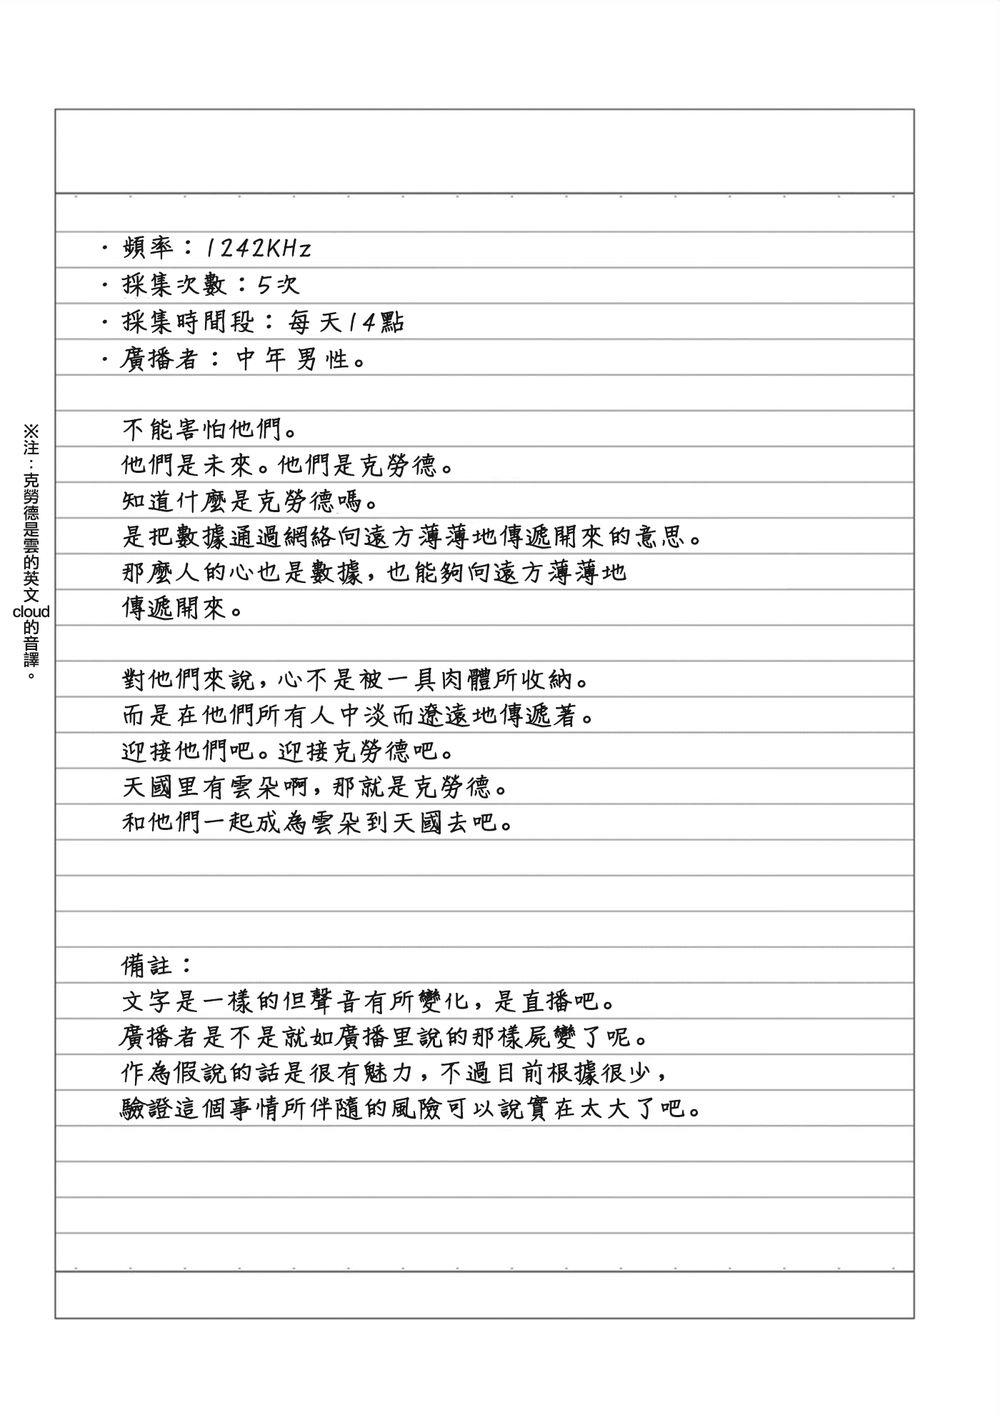 ·頻率：1242KHz
·採集次數：5次
·採集時間段：每天14點
·廣播者：中年男性。
不能害怕他們。
他們是未來。他們是克勞德。
知道什麼是克勞德嗎。
是把數據通過網絡向遠方薄薄地傳遞開來的意思。
那麼人的心也是數據，也能夠向遠方薄薄地
傳遞開來。
對他們來說，心不是被一具肉體所收納。
而是在他們所有人中淡而遼遠地傳遞著。
迎接他們吧。迎接克勞德吧。
天國里有雲朵啊，那就是克勞德。
和他們一起成為雲朵到天國去吧。
備註：
文字是一樣的但聲音有所變化，是直播吧。
廣播者是不是就如廣播里說的那樣屍變了呢。
作為假說的話是很有魅力，不過目前根據很少，
驗證這個事情所伴隨的風險可以說實在太大了吧。
※注：克勞德是雲的英文cloud的音譯。